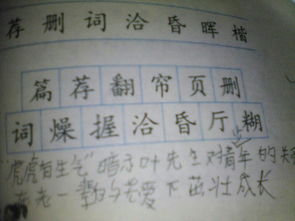 荐删词洽昏晖楷
篇荐翻帘页删
词燥握洽昏厅糊
"虎虎有生气"暗示叶先生对青年的关
在老一辈的关爱下茁壮成长